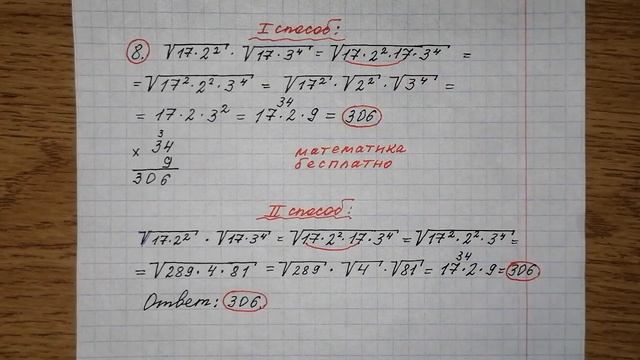 I способ:
8. √17·2² · √17·3⁴ = √17·2²·17·3⁴ =
= √17²·2²·3⁴ = √17² · √2² · √3⁴ =
= 17·2·3² = 17·2·9 = 306
34
3
× 34
9
306
математика
бесплатно
II способ:
√17·2² · √17·3⁴ = √17·2²·17·3⁴ = √17²·2²·3⁴ =
= √289·4·81 = √289 · √4 · √81 = 17·2·9 = 306
34
Ответ: 306.